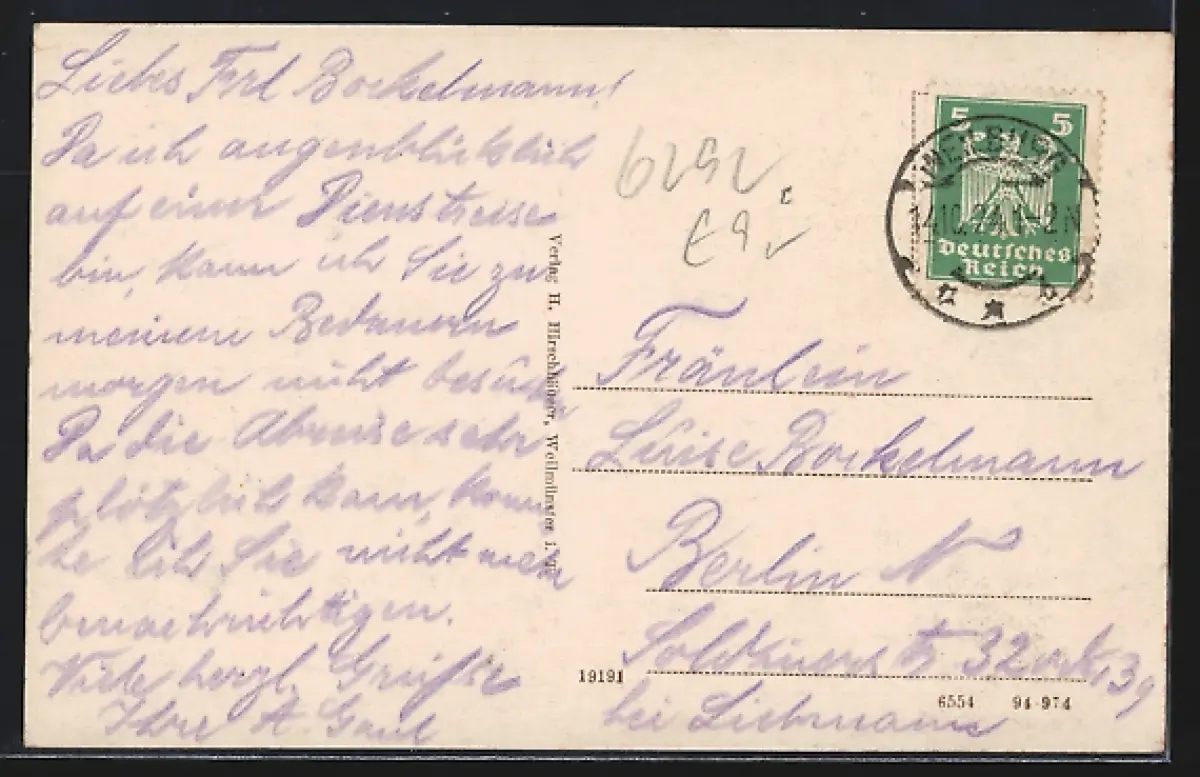 Liebes Frl Bockelmann!
Da ich augenblicklich
auf einer Dienstreise
bin, kann ich Sie zu
meinem Bedauern
morgen nicht besuchen
Da die Abreise sehr
plötzlich kam, konn
te ich Sie nicht mehr
benachrichtigen.
Viele herzl. Grüße
Ihre A. Gaul
Verlag H. Hirschhäuser, Weilmünster i. T.
19191
6292
£9
5 5
Deutsches
Reich
14.10.24.1-2N
Fräulein
Luise Bockelmann
Berlin N
32
bei Liebmann
6554 94-974